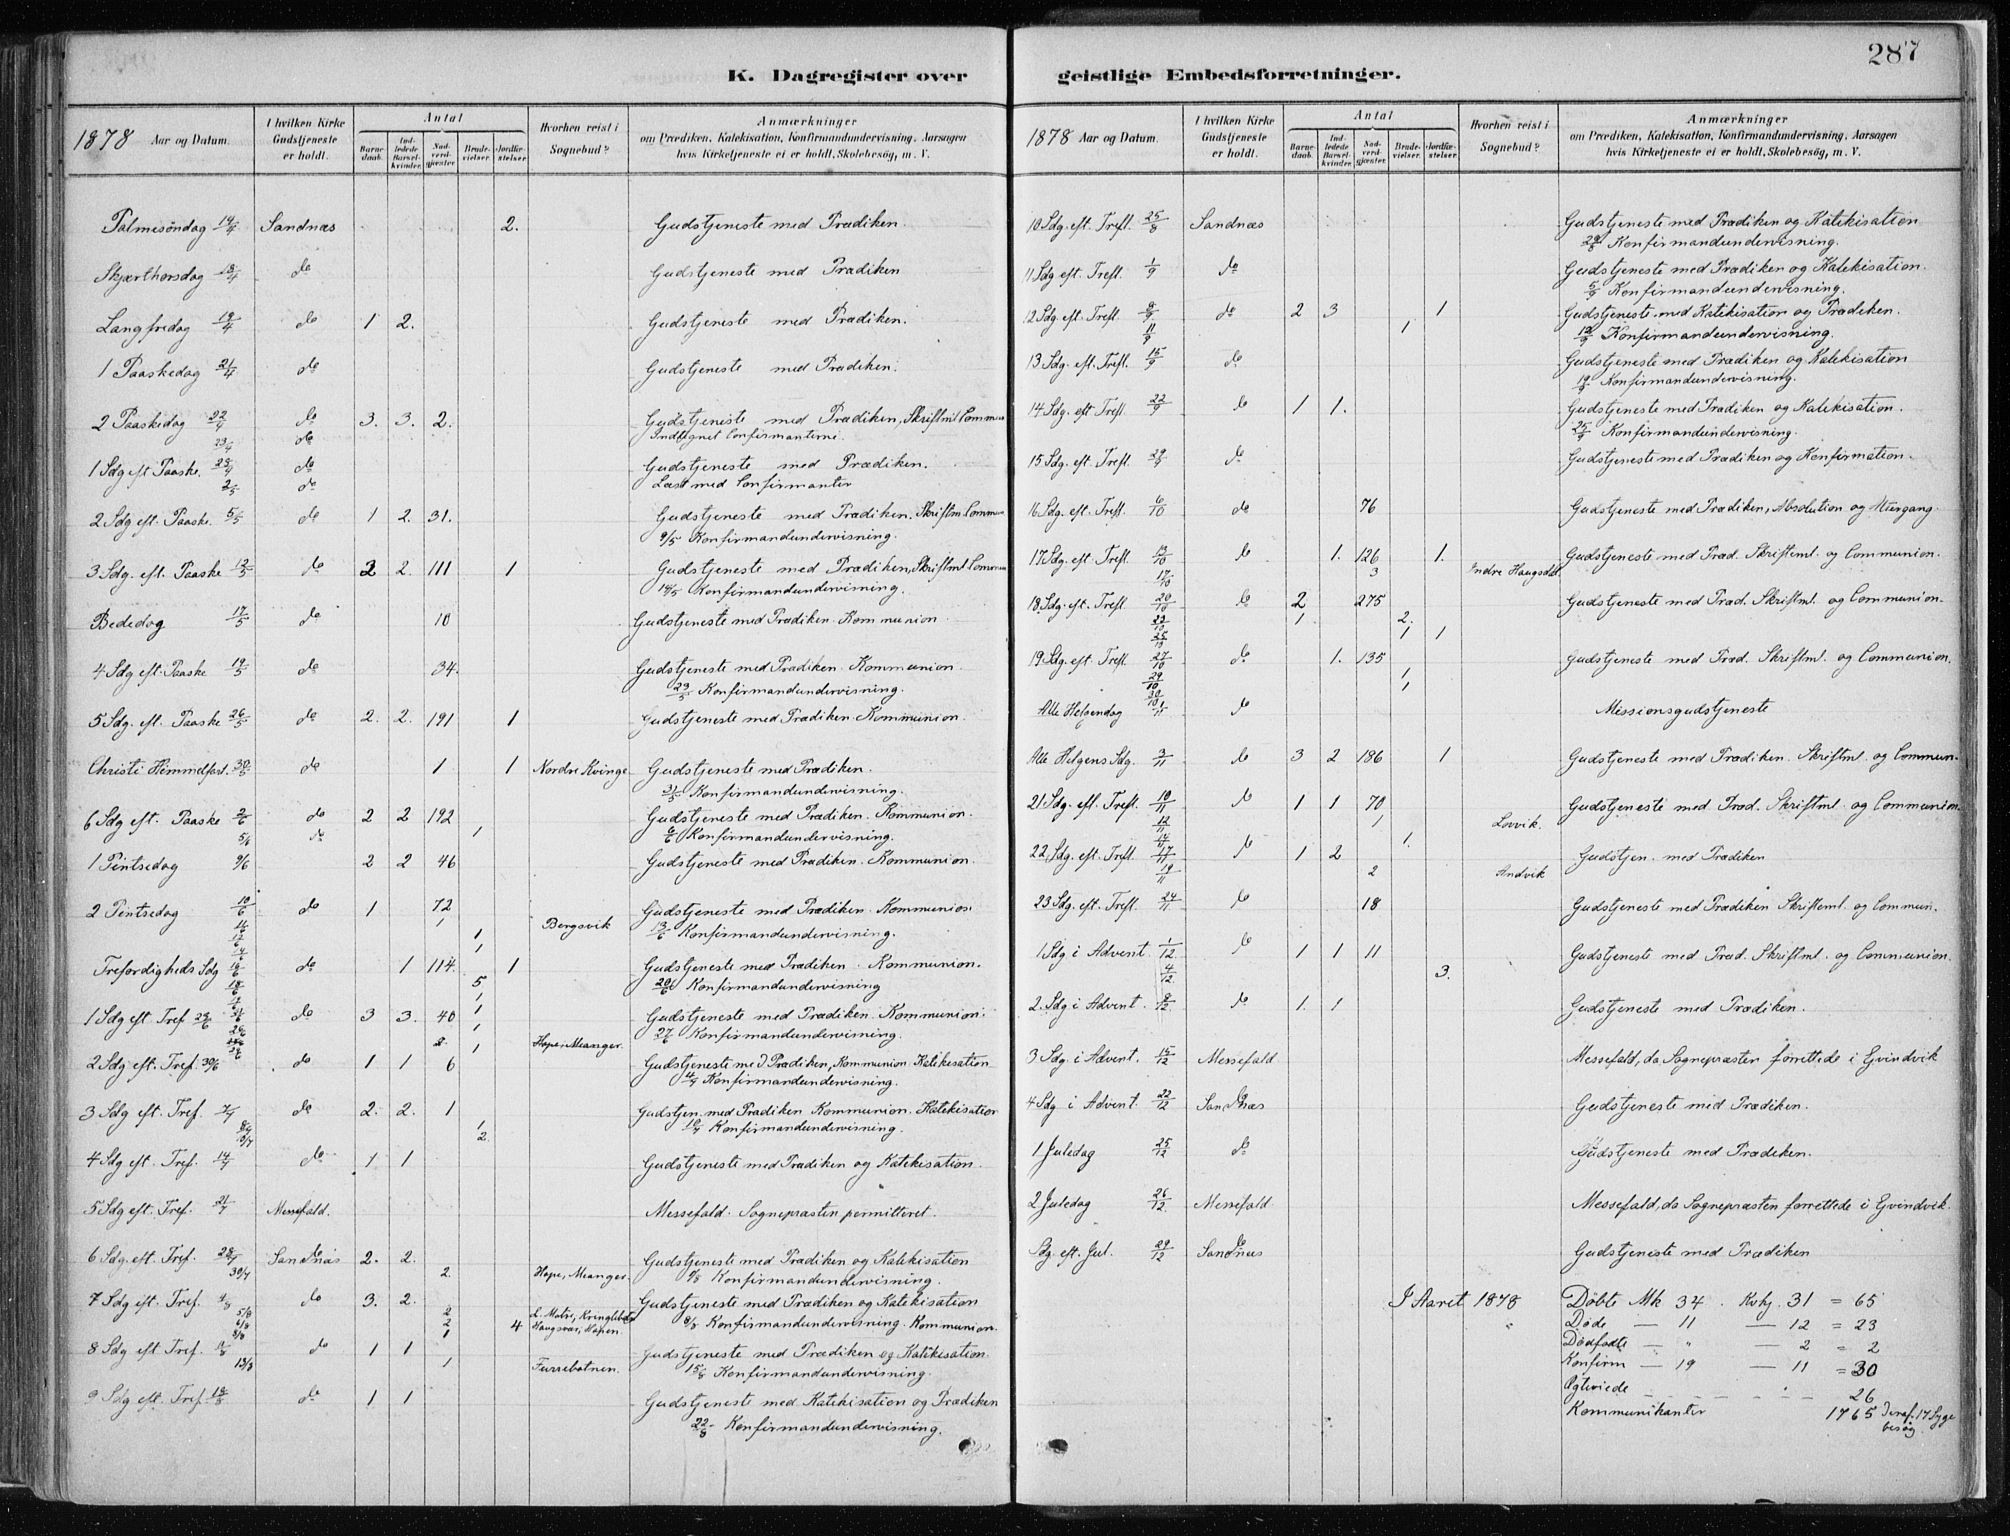 287
K. Dagregister over geistlige Embedsforretninger.
1878 Aar og Datum. I hvilken Kirke Gudstjeneste er holdt. Antal Barnedaab. Indledede Barselkvinder. Nadverdgjester. Brudevielser. Jordfæstelser. Hvorhen reist i Sognebud? Anmærkninger om Prædiken, Katekisation, Konfirmandundervisning, Aarsagen hvis Kirketjeneste ei er holdt, Skolebesøg, m. V.
Palmesöndag 14/4 Sandnæs 2. Gudstjeneste med Prædiken
Skjærthorsdag 18/4 do Gudstjeneste med Prædiken
Langfredag 19/4 do 1 2. Gudstjeneste med Prædiken.
1 Paaskedag 21/4 do Gudstjeneste med Prædiken.
2 Paaskedag 22/4 do 3. 3. 2. Gudstjeneste med Prædiken, Skriftml Commun
23/4 do Indtegnet Confirmanterne.
1 Sdg eft Paaske. 28/4 do Gudstjeneste med Prædiken.
2/5 do Læst med Confirmanter
2 Sdg eft. Paaske. 5/5 do 1 2. 31. Gudstjeneste med Prædiken. Skriftm Commun
9/5 Konfirmandundervisning.
3 Sdg. eft. Paaske 12/5 do 2 2. 111 1 Gudstjeneste med Prædiken, Skriftml Commun
14/5 Konfirmandundervisning.
Bededag 17/5 do 10 Gudstjeneste med Prædiken. Kommunion.
4 Sdg eft. Paaske 19/5 do 34. Gudstjeneste med Prædiken. Kommunion.
23/5 Konfirmandundervisning.
5 Sdg. eft. Paaske 26/5 do 2. 2. 191 1 Gudstjeneste med Prædiken. Kommunion.
Christi Himmelfart. 30/5 do 1 1 Nordre Kvinge Gudstjeneste med Prædiken.
31/5 Konfirmandundervisning.
6 Sdg eft. Paaske 2/6 do 2 2 192 Gudstjeneste med Prædiken. Kommunion.
5/6 do 1 6/6 Konfirmandundervisning.
1 Pintsedag 9/6 2 2 46 Gudstjeneste med Prædiken. Kommunion
2 Pintsedag 10/6 do 1 72 Gudstjeneste med Prædiken. Kommunion
1 Bergsvik 13/6 Konfirmandundervisning.
1
1
Trefoldigheds Sdg 16/6 do 1 114. 1 Gudstjeneste med Prædiken. Kommunion.
5 20/6 Konfirmandundervisning
1
1 Sdg eft. Tref 23/6 do 3 3. 40 1 Gudstjeneste med Prædiken. Kommunion.
1 27/6 Konfirmandundervisning.
2. 1 Hope, Meanger.
2 Sdg eft. Tref. 30/6 do 1 1 6 Gudstjeneste med Prædiken, Kommunion. Katekisation
4/7 Konfirmandundervisning.
3 Sdg eft. Tref. 7/7 do 2. 2. 1 Gudstjen. med Prædiken Kommunion. Katekisation
1 Konfirmandundervisning.
2.
4 Sdg eft. Tref. 14/7 do 1 1 Gudstjeneste med Prædiken og Katekisation.
5 Sdg eft. Tref. 21/7 Messefald. Messefald. Sognepræsten permitteret.
6 Sdg. eft. Tref. 28/7 Sandnæs 2. 2. Gudstjeneste med Prædiken og Katekisation
30/7 2. Hope, Meanger. Konfirmandundervisning.
7 Sdg eft. Tref. 4/8 do 3. 2. Gudstjeneste med Prædiken og Katekisation
5/8 2 8/8 Konfirmandundervisning. Kommunion.
6/8 2 4
8/8 1
8 Sdg eft Tref. 11/8 do 1 1 Gudstjeneste med Prædiken og Katekisation.
13/8 1 Furrebotnen. 15/8 Konfirmandundervisning.
9 Sdg eft. Tref. 18/8 do 1 1 Gudstjeneste med Katekisation og Prædiken
22/8 Konfirmandundervisning.
1878 Aar og Datum. I hvilken Kirke Gudstjeneste er holdt. Antal Barnedaab. Indledede Barselkvinder. Nadverdgjester. Brudevielser. Jordfæstelser. Hvorhen reist i Sognebud? Anmærkninger om Prædiken, Katekisation, Konfirmandundervisning, Aarsagen hvis Kirketjeneste ei er holdt, Skolebesøg, m. V.
10 Sdg. eft. Trefl. 25/8 Sandnæs Gudstjeneste med Prædiken og Katekisation
29/8 Konfirmandundervisning.
11 Sdg eft. Trefl. 1/9 do Gudstjeneste med Prædiken og Katekisation.
5/9 Konfirmandundervisning.
12 Sdg. eft. Trefl. 8/9 do 2 3 1 Gudstjeneste med Katekisation og Prædiken.
11/9 1 12/9 Konfirmandundervisning.
13 Sdg. eft. Trefl. 15/9 do Gudstjeneste med Prædiken og Katekisation
19/9 Konfirmandundervisning.
14 Sdg. eft Trefl. 22/9 do 1 1. Gudstjeneste med Prædiken og Katekisation.
25/9 Konfirmandundervisning.
15 Sdg. eft. Trefl. 29/9 do Gudstjeneste med Prædiken og Konfirmation.
16 Sdg. eft. Trefl. 6/10 do 76 Gudstjeneste med Prædiken, Absolution og Altergang.
17 Sdg. eft. Trefl. 13/10 do 1. 126 1. Gudstjeneste med Præd. Skriftml. og Communion.
17/10 3 Indre Haugsdal.
18 Sdg. eft. Trefl. 20/10 do 2 275 Gudstjeneste med Præd. Skriftml. og Communion.
23/10 1 2.
25/10 1 1
19. Sdg. eft. Trefl. 27/10 do 1. 135 Gudstjeneste med Præd. Skriftml. og Communion.
29/10 1
30/10 1
Alle Helgendag 1/11 do Missionsgudstjeneste
Alle Helgens Sdg. 3/11 do 3 2 186 1 Gudstjeneste med Prædiken. Skriftml. og Commun.
21. Sdg. eft. Trefl. 10/11 do 1 1 70 Gudstjeneste med Præd. Skriftml. og Communion
12/11 1 Lovvik.
14/11 1.
22. Sdg. eft. Trefl. 17/11 do 1 2 Gudstjen. med Prædiken
19/11 2 Andvik
23 Sdg. eft. Trefl. 24/11 do 18 Gudstjeneste med Prædiken Skrifteml. og Commun.
1 Sdg i Advent. 1/12 do 1 1 11 Gudstjeneste med Præd. Skriftml. og Communion.
4/12 3.
2. Sdg i Advent. 8/12 do 1. 1 Gudstjeneste med Prædiken.
3 Sdg. i Advent. 15/12 Messefald Messefald, da Sognepræsten forrettede i Evindvik
4 Sdg i Advent. 22/12 Sandnæs Gudstjeneste med Prædiken.
1 Juledag 25/12 do Gudstjeneste med Prædiken.
2 Juledag 26/12 Messefald. Messefald, da Sognepræsten forrettede i Evindvik.
Sdg. eft. Jul. 29/12 Sandnæs Gudstjeneste med Prædiken
I Aaret 1878 Döbte Mk 34. Kvkj. 31 = 65
" Döde — 11 — 12 = 23
Dödfödte — " — 2 = 2
Konfirm — 19 — 11 = 30
Ægteviede — 26
Kommunikanter 1765 Deraf 17 Syge
besög